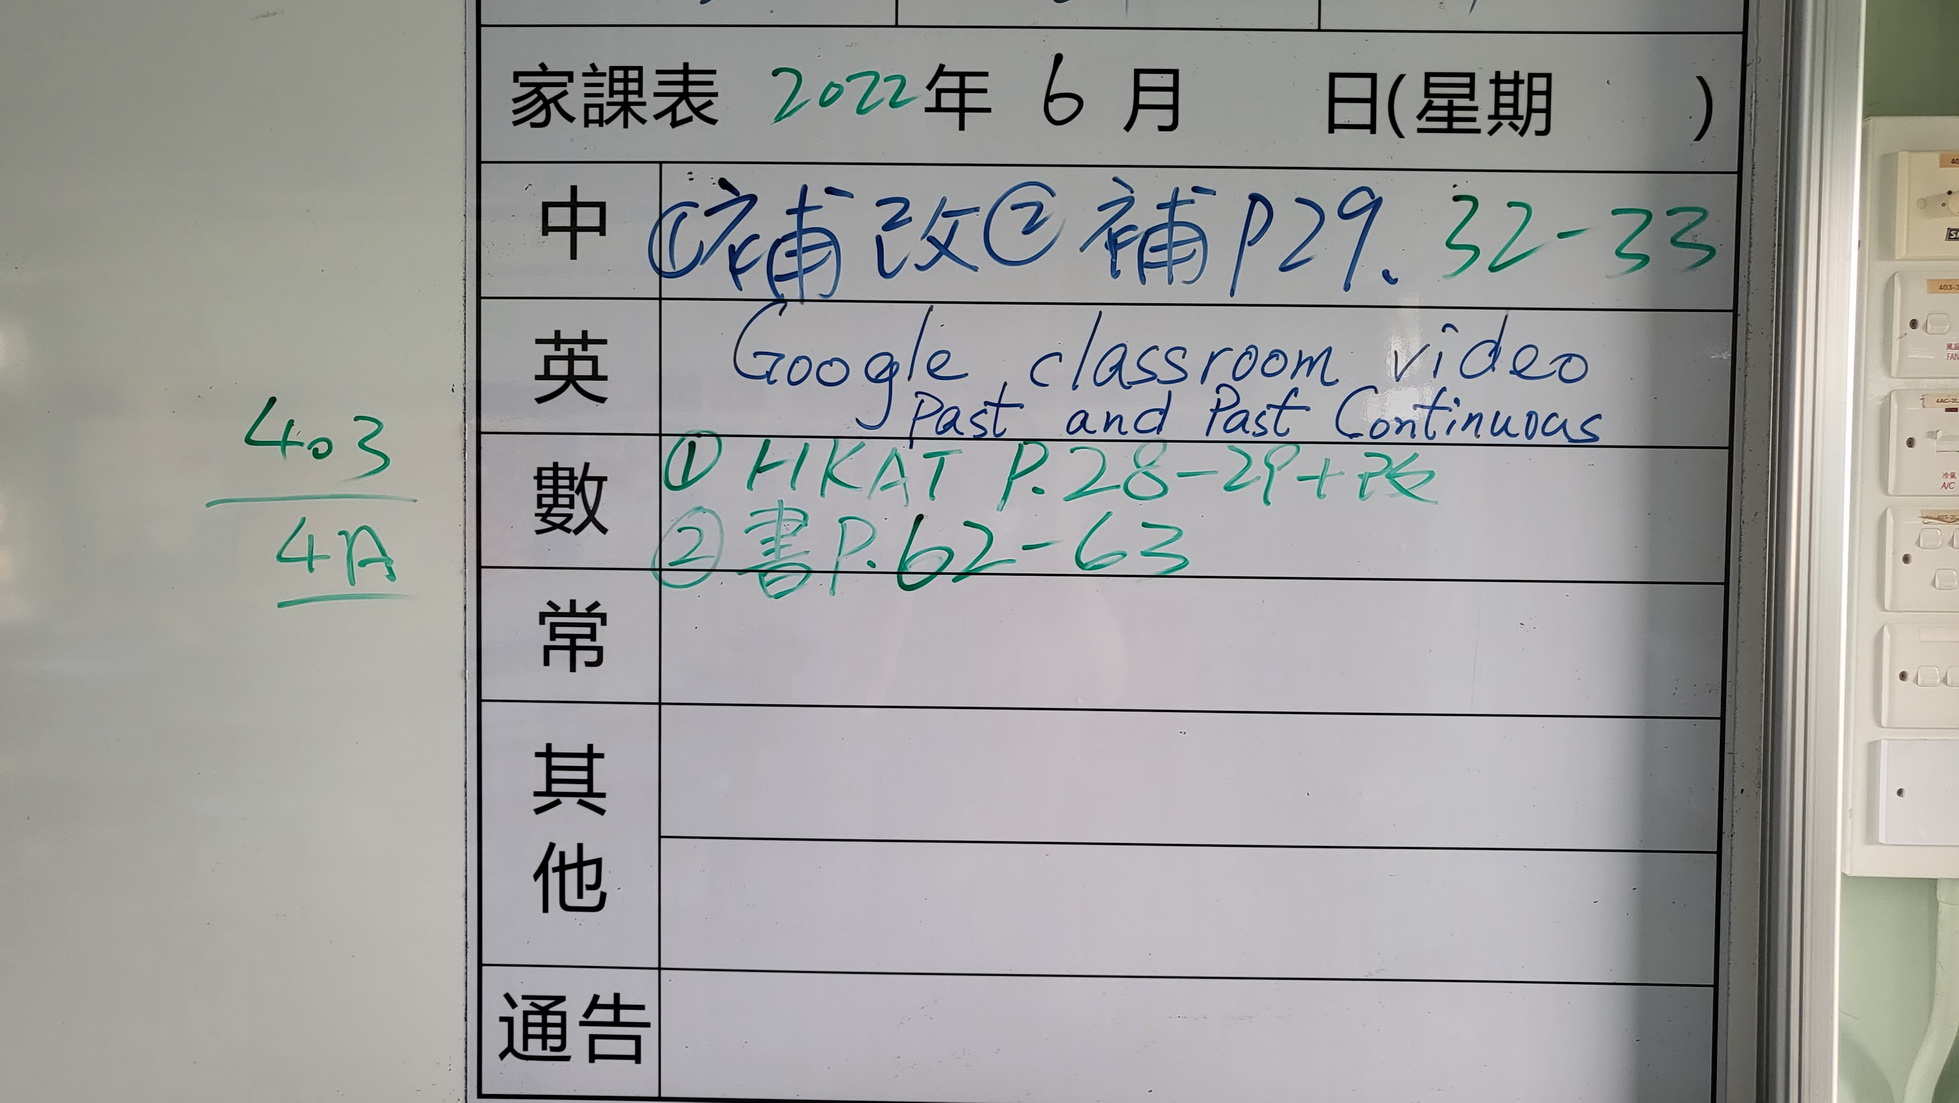 家課表 2022年 6 月 日(星期 )
中 ①補改②補P29、32-33
英 Google classroom video
Past and Past Continuous
數 ① HKAT P.28-29+改
② 書P.62-63
常
其他
通告
403
4A